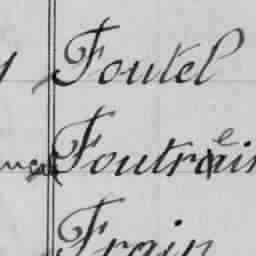 Foutel
Foutrein
Frain